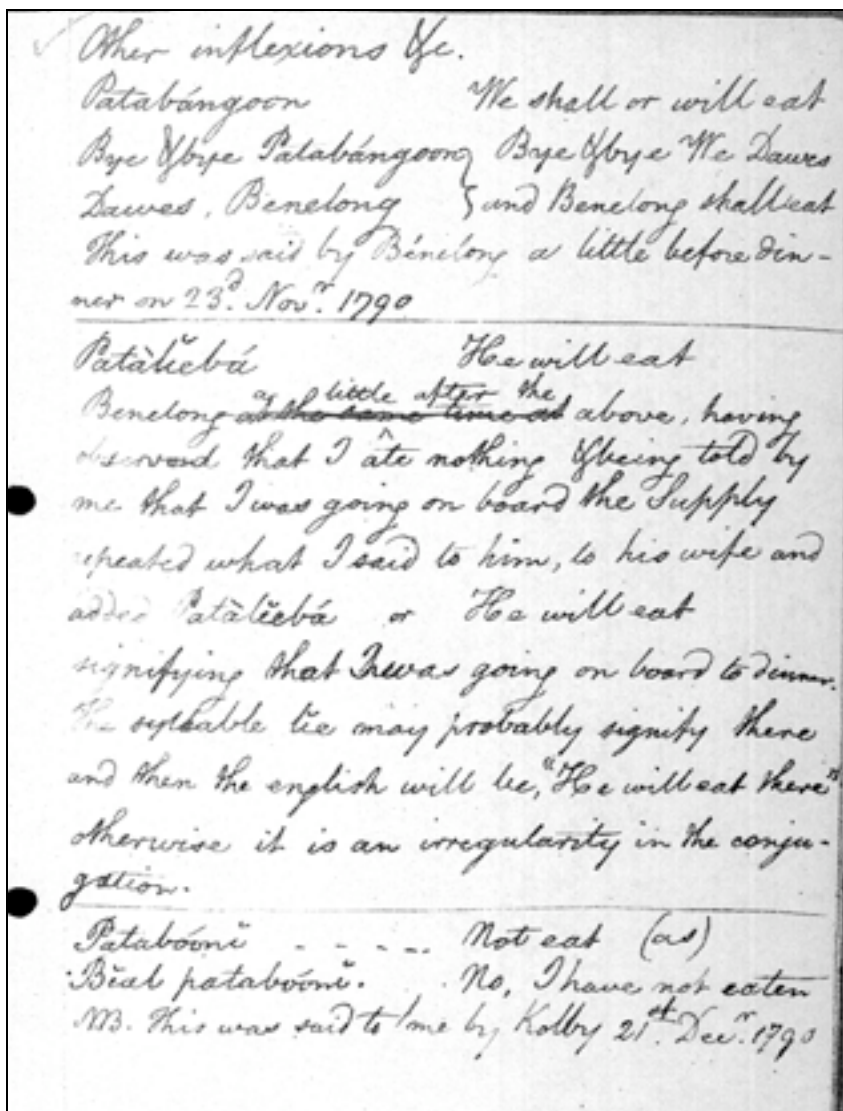 Other inflexions &c.
Patabángoon We shall or will eat
Bye &bye Patabángoon } Bye &bye We Dawes
Dawes, Benelong } and Benelong shall eat
This was said by Bénelong a little before din-
ner on 23.d Nov.r 1790
Patàlĭebá He will eat
a little after the
Benelong at the same time as above, having
observed that I ate nothing &being told by
me that I was going on board the Supply
repeated what I said to him, to his wife and
added Patàlĭebá or He will eat
signifying that I was going on board to dinner.
The syllable lĭe may probably signify there
and then the english will be, "He will eat there"
otherwise it is an irregularity in the conju-
gation.
Patabóonĭ - - - - Not eat (as)
Bĭal patabóonĭ. . No, I have not eaten
NB. This was said to me by Kolby 21.st Dec.r 1790